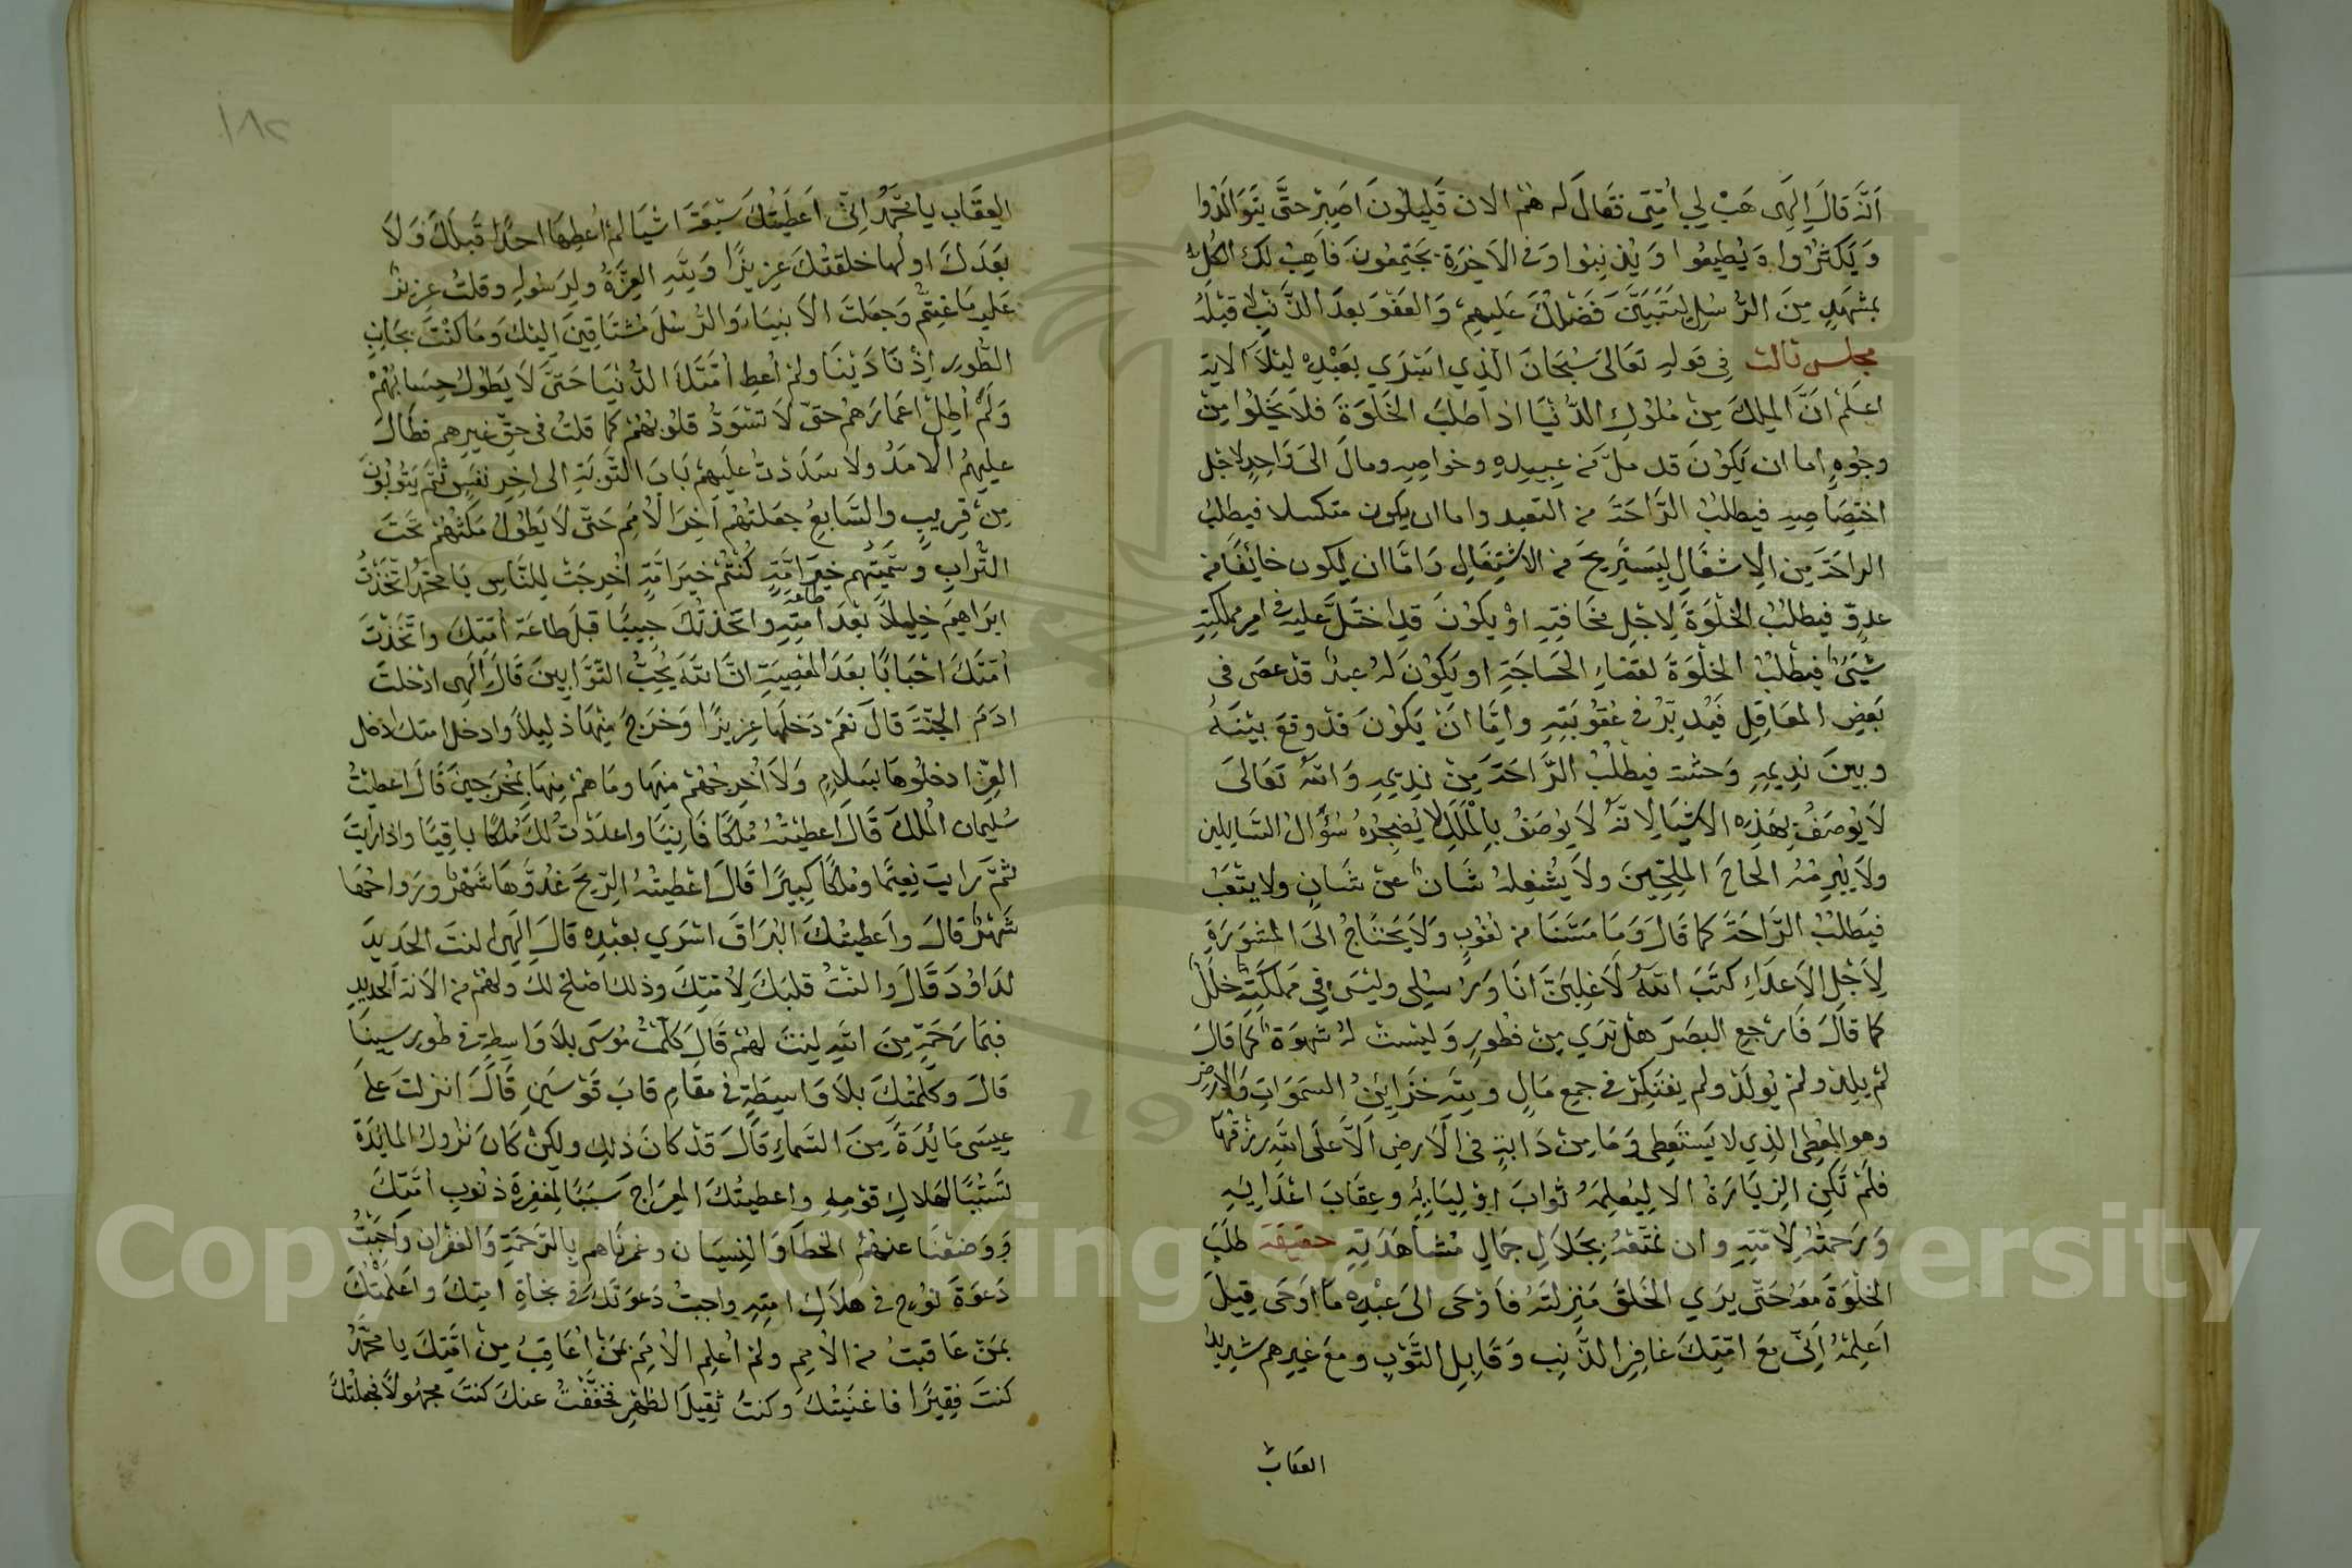 انَّه قالَ الهِي هَبْ لِي اُمَّتِي فقالَ له هُم الان قَلِيلُونَ اصْبِر حتَّى يَتَوَالَدُوا
وَيَكثُرُوا وَيُطِيعُوا وَيُذنِبُوا وَفي الاخِرَةِ يَجتَمِعُونَ فاَهِبُ لكَ الكُلَّ
بمَشهَدٍ مِنَ الرُّسُلِ لِيَتَبَيَّنَ فَضلُكَ عليهِم وَالعَفوُ بعدَ الذَّنبِ لا قبْلهُ
مجلس ثالث في قولهِ تعَالى سُبحَانَ الَّذِي اسْرَي بعَبْدِهِ ليْلاً الاية
اعلَم انَّ الملِكَ مِن مُلوكِ الدُّنيَا اذا طَلبَ الخَلوَةَ فلاَ يَخلُوا مِن
وجُوهٍ اما ان يَكوُنَ قد ملَّ من عبيدِهِ وخواصهِ ومالَ الىَ وَاحِدٍ لاجْل
اختِصَاصِهِ فيطلبُ الرَّاحَةَ من التعبد واما ان يكون متكسلا فيطلبُ
الراحَةَ مِن الاِشغَالِ ليَستَرِيحَ من الاشتِغَالِ وَامَّا ان يكون خائفًا من
عدوٍّ فيطلبُ الخلْوَةَ لاِجْلِ مخافتِهِ اوْ يكوُنَ قدِ اختَلَّ عليه في امرِ مملكتِهِ
شَيْئٌ فيطلبُ الخلْوَةَ لقضَاءِ الحَاجَةِ او يَكوُنَ لهُ عبدٌ قد عصَى في
بَعضِ المعَاقِلِ فيُدبِّرُ في عقُوبَتِهِ وامَّا انْ يَكوُنَ قدْ وقعَ بيْنَهُ
وبينَ ندِيمِهِ وَحشة فيطلُبُ الرَّاحَةَ مِنْ ندِيمِهِ وَاللهُ تعَالىَ
لاَ يوُصَفُ بهَذِه الاشيَا لِانَّهُ لاَ يوُصَفُ بِالْمَلَلِ لا يُضْجِرُهُ سُؤَالُ السَّايلِين
ولاَ يُبرِمُهُ الحَاحُ المُلِحِّينَ ولاَ يُشغِلهُ شَانٌ عن شَانٍ ولا يتعَبُ
فيَطلبُ الرَّاحَةَ كما قالَ وَمَا مَسَّنَا من لغُوبٍ وَلاَ يَحتَاجُ الىَ المشوَرَةِ
لاَجْلِ الاَعدَاءِ كَتَبَ اللهُ لَاَغلِبَنَّ انَا وَرُسُلِي وليْسَ فِي مَملكَتِهِ خلَلٌ
كما قالَ فَارْجِع البصَرَ هل تَرَي مِن فُطورٍ وَليْست لهُ شهوَةٌ كما قالَ
لمْ يلِد ولمْ يوُلَدْ ولم يفتَكِر في جمع مَالٍ ولِلَّهِ خزَائِنُ السمَوَاتِ وَالارض
وهو المعْطِى الذِي لا يَستَعطِى وَمَا مِن دَابةٍ فى الاَرضِ الاَّ علَى اللهِ رِزقهَا
فلَمْ تكنِ الزِيَارَةُ الا لِيُعلِمَهُ ثوابَ اوْلِيَايِهِ وعِقَابَ اعْدَايِهِ
وَرَحمَتَهُ لِامَّتِهِ وان يمَتّعَهُ بجَلالِ جمَالِ مُشاهَدَتِهِ حقيقة طلَبَ
الخلْوَةَ معَهُ حَتَّى يرَي الخَلقُ مَنزِلَتَهُ فَاَوْحَى الىَ عبْدِهِ مَا اَوحَى قِيلَ
اَعلمهُ اَنِّى معَ امَّتِكَ غافِر الذَّنبِ وَقَابِل التَّوبِ ومعَ غيرِهم شَدِيدُ
العقاب
١٨٢
العِقَابِ يا محَمَّدُ اِنِّى اَعطيتُكَ سَبْعَةَ اشيَا لمْ اُعطِهَا احدًا قبلَكَ وَلاَ
بَعدَكَ اولُها خلقتُكَ عزِيزًا وَلِلَّهِ العِزَّةُ ولِرَسُولِهِ وقلتُ عزِيزٌ
عَليهِ مَا عَنِتُّم وَجعَلتُ الاَنبيَاءَ وَالرُّسُلَ مُشتَاقِينَ اليْكَ وَمَا كنْتَ بجَانبِ
الطُّورِ اِذْ نَادَيْنَا ولم اُعطِ اُمَّتَكَ الدُّنيَا حَتَّى لاَ يَطوُلَ حِسَابُهُمْ
وَلَم اُطِلْ اعمارَهُم حَتّى لاَ تَسْوَدَّ قلوبُهُمْ كما قلتُ فى حَقِّ غيرِهِم فطَالَ
عليهِمُ الاَمَدُ ولا سَدَدْتُ علَيهِم بَابَ التَّوبَةِ الى اخِرِ نفَسٍ ثُمَّ يَتُوبُونَ
مِن قرِيبٍ والسَّابعُ جعَلتهُم اخِرَ الاُمَمِ حَتّى لا يَطوُلَ مَكثُهُمْ تحَتَ
التُّرَابِ وسَمَّيتُهم خيرَ امَّةٍ كُنتُم خيرَ امَّةٍ اُخْرِجَتْ لِلنَّاسِ يَا محَمَّدُ اتّخَذتُ
ابرَاهِيمَ خلِيلاً بَعْدَ طاعة اُمَّتِهِ وَاتخَذتُكَ حبِيبًا قبلَ طاعَة اُمَّتكَ واتّخَذتُ
اُمَّتَكَ احْبَابًا بعدَ المعْصِيَةِ انَّ اللهَ يُحِبُّ التّوَّابينَ قالَ الهِى ادْخلتَ
ادَمَ الجنّةَ قالَ نعَمْ دَخلهَا عزِيزًا وَخرَجَ مِنهَا ذلِيلاً وادخل امتك اذل
العِزّ ادخلُوهَا بسَلاَمٍ وَلاَ اُخرِجُهُمْ مِنهَا ومَا هُم مِنهَا بِمُخرَجِينَ قَالَ اعطيتَ
سُليمان المُلكَ قَالَ اعطيتُهُ مُلكًا فَانِيًا واعدَدتُ لكَ مُلكًا باقِيًا واذا رَايتَ
ثمَّ رَايتَ نعِيمًا ومُلكًا كبِيرًا قالَ اعْطَيتَهُ الرِّيحَ غدُوُّهَا شَهْرٌ ورَوَاحُهَا
شَهرٌ قالَ واَعطيتُكَ البُرَاقَ اسْرَي بعَبْدِهِ قالَ الَهِى النتَ الحَدِيدَ
لدَاوُدَ قَالَ والنْتُ قلبَكَ لِاُمّتِكَ وذلك اصْلح لك ولهُم من الانة الحَديدِ
فبِمَا رَحمَةٍ مِنَ اللهِ لِنتَ لهُم قَالَ كلَّمتَ مُوسَى بلاَ وَاسِطةٍ في طور سينَا
قالَ وكلّمتُكَ بلاَ وَاسِطَةٍ في مقَامِ قابَ قَوْسَينِ قَالَ انزلتَ علَى
عِيسَى مَائِدَةً مِنَ السَمَاءِ قَالَ قدْ كانَ ذلِك ولكِنْ كانَ نزُولُ المايدَة
سَبَبًا لهَلاكِ قوْمِهِ واعطيتُكَ المِعرَاجَ سَبَبًا لمغفِرَةِ ذنُوبِ اُمَّتِكَ
وَوَضعْنَا عنهُمُ الخطَا وَالنِسيَان وغمرنَاهم بالرَّحمَةِ وَالغفرَان وَاَجبْتُ
دَعوَةَ نوُحٍ في هلاَكِ امّتِهِ واجبتُ دَعوَتكَ في نجَاةِ امتِكَ واعَلمتُكَ
بمَنْ عَاقبتُ من الاُممِ ولمْ اُعلِمِ الاُمَمَ بمَنْ اُعَاقِبُ مِن امَّتِكَ يا محمَّدُ
كنتَ فقِيرًا فاغنَيتُكَ وكنتَ ثقِيلَ الظهْرِ فخفَّفتُ عنكَ كنتَ مجهُولاً فجعلتُكَ
Copyright © King Saud University